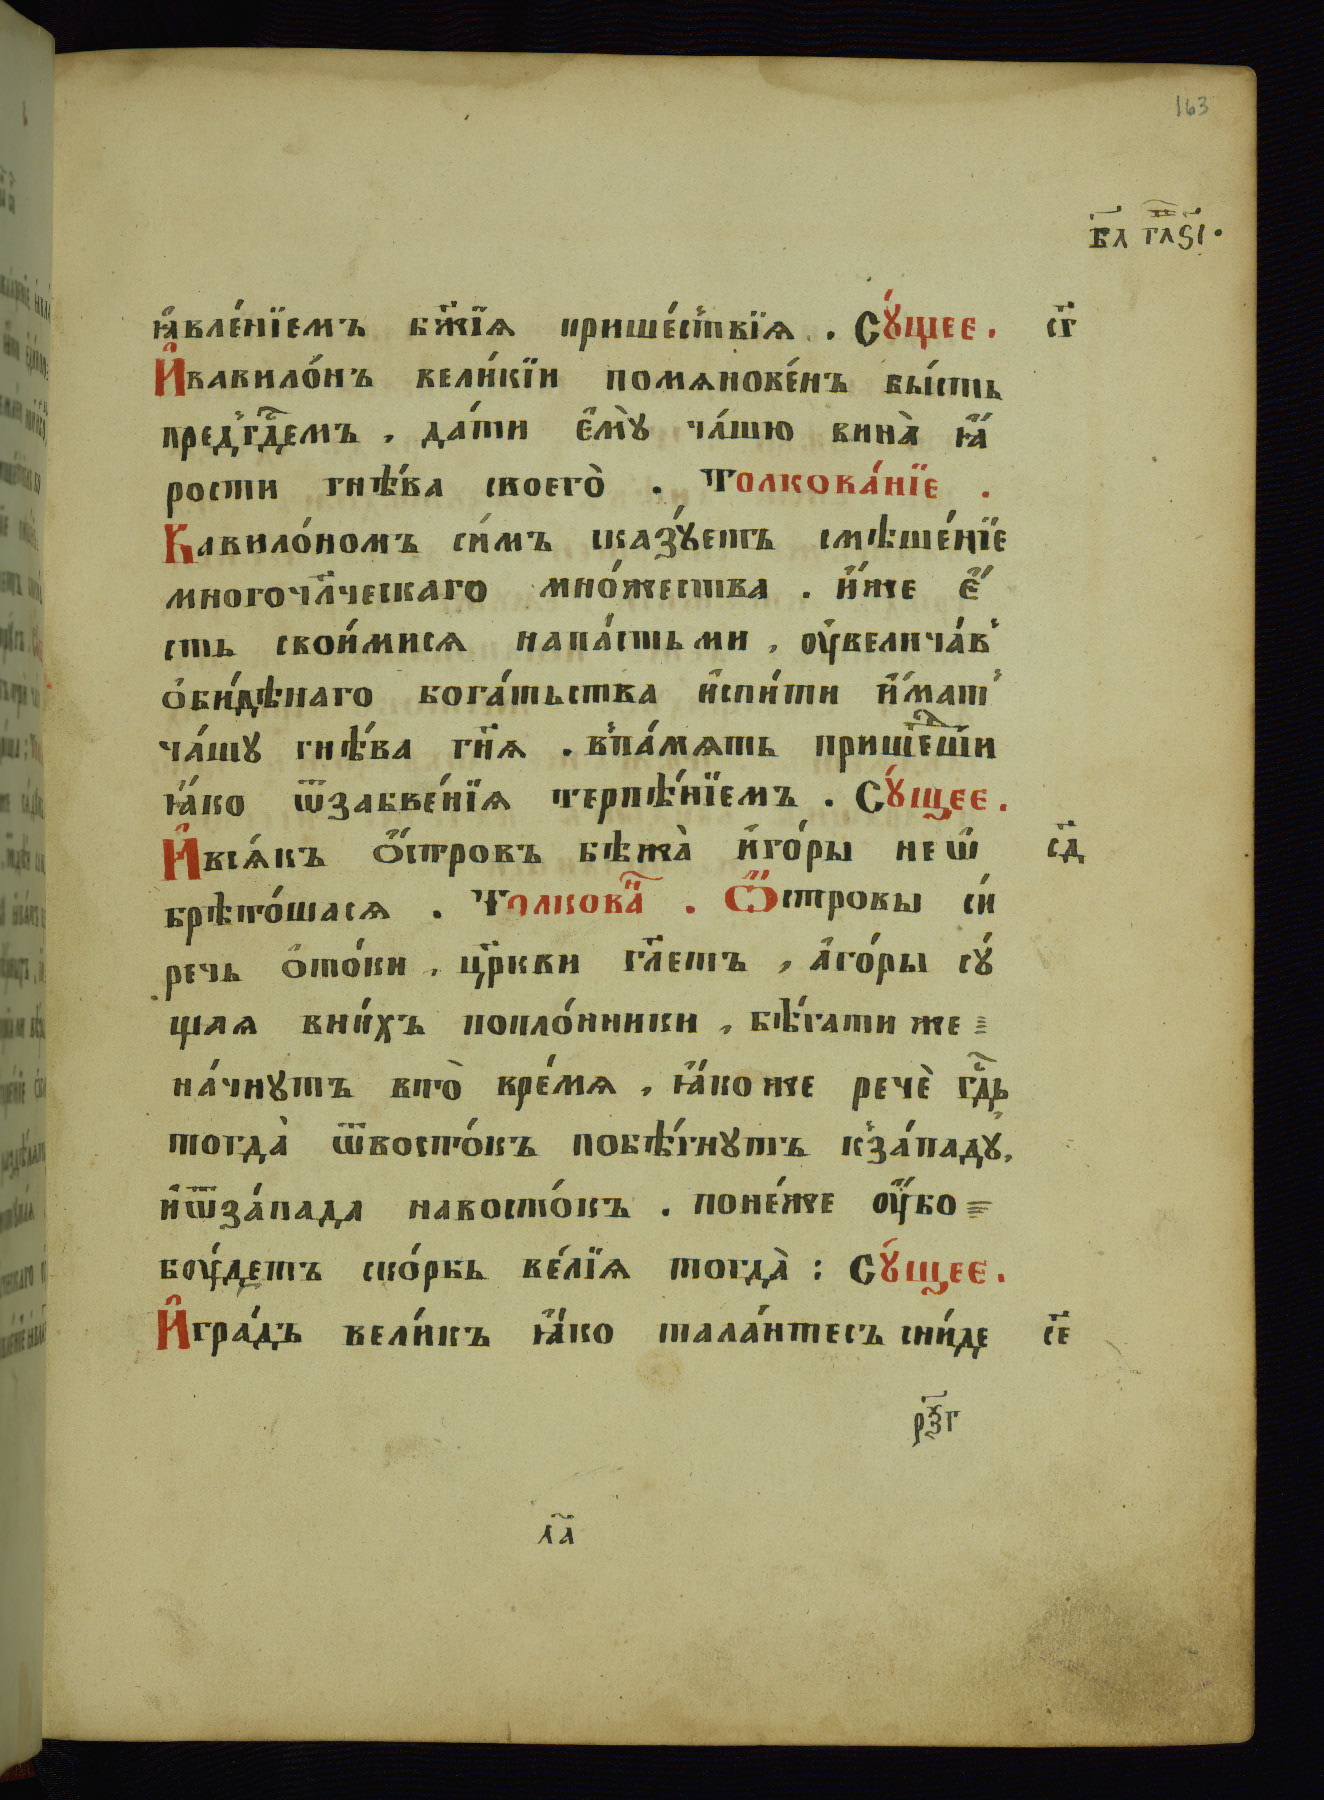 163
в҃л гла҃ ѕ҃і ·
ꙗ҆вле́нїемъ бж҃їѧ прише́ствїѧ . Сꙋ́щее . с҃г
И҆вавило́нъ вели́кїи помѧнове́нъ бы́сть
пред̾гдⷭ҇емъ , да́ти є҆мꙋ̀ ча́шю вина̀ ꙗ҆́
рости гнѣ́ва своего̀ . Толкова́нїе .
Вавило́номъ си́мъ сказꙋ́етъ смѣше́нїе
многочл҃ческаго мно́жества . и҆́же є҆́
сть свои́мисѧ напа́стьми , оу҆велича́в̾
ѻ҆би́дѣнаго бога́тьства и҆спи́ти и҆́мат̾
ча́шꙋ гнѣ́ва гн҃ѧ . в̾па́мѧть прише́дши
ꙗ҆́ко ѿзабве́нїѧ терпѣ́нїемъ . Сꙋ́щее .
И҆всѧ́къ ѻ҆́стровъ бѣжа̀ и҆го́ры не ѡ҆ с҃д
брѣто́шасѧ . Толкова́н . Ѻ҆́стровы си́
речь ѻ҆то́ки , цр҃кви гл҃етъ , а҆го́ры сꙋ́
щаѧ вни́хъ попло́нники , бѣ́гати же
на́чнꙋтъ вто̀ вре́мѧ , ꙗ҆́коже речѐ гдⷭ҇ь
тогда̀ ѿвосто́къ побѣ́гнꙋтъ к̾за́падꙋ ,
и҆ѿза́пада навосто́къ . поне́же оу҆́бо
боу́детъ ско́рбь ве́лїѧ тогда̀ : Сꙋ́щее .
И҆гра́дъ вели́къ ꙗ҆́ко тала́нтесъ сни́де с҃е
рѯ҃г
ла҃